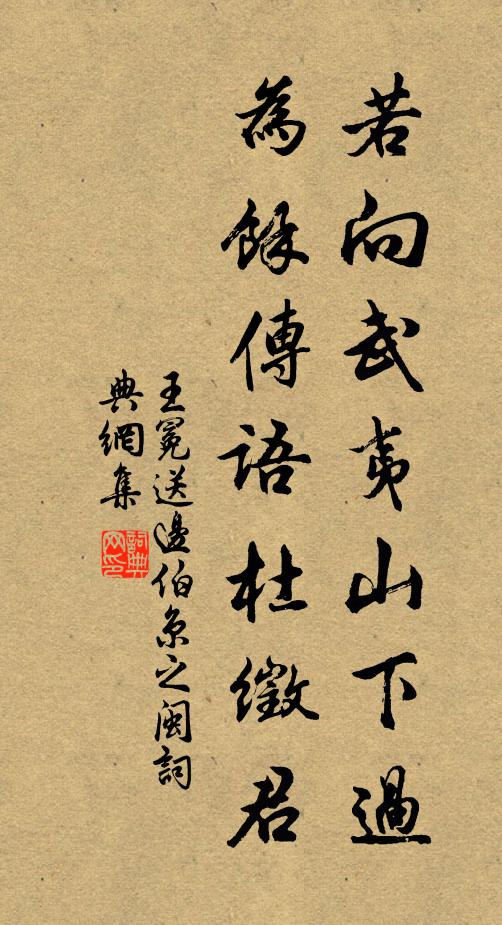 若向武夷山下過
為餘傳語杜徵君
王冕送邊伯京之閩詞
典網集
詞典
网印